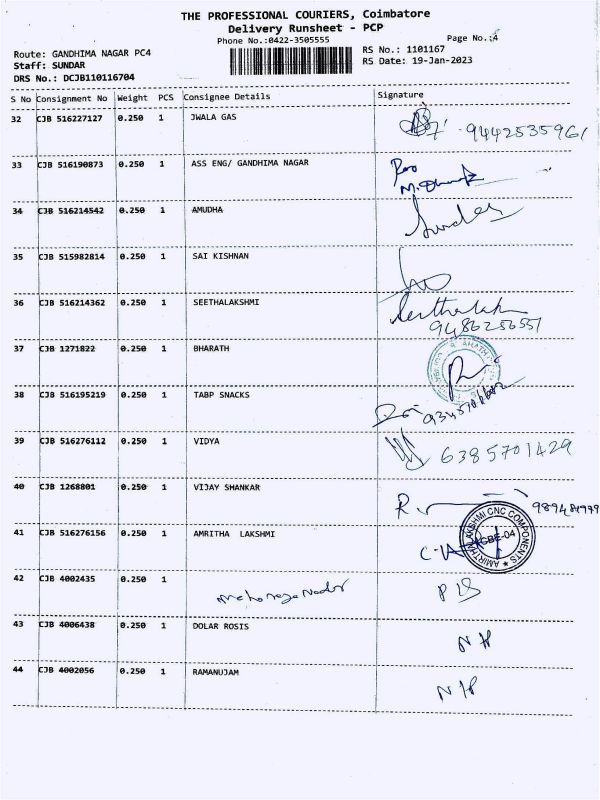 THE PROFESSIONAL COURIERS, Coimbatore
Delivery Runsheet - PCP
Phone No.:0422-3505555
Page No.:4
Route: GANDHIMA NAGAR PC4
RS No.: 1101167
Staff: SUNDAR
RS Date: 19-Jan-2023
DRS No.: DCJB110116704
S No Consignment No Weight PCS Consignee Details Signature
32 CJB 516227127 0.250 1 JWALA GAS 9442535961
33 CJB 516190873 0.250 1 ASS ENG/ GANDHIMA NAGAR
34 CJB 516214542 0.250 1 AMUDHA
35 CJB 515982814 0.250 1 SAI KISHNAN
36 CJB 516214362 0.250 1 SEETHALAKSHMI
9486256551
37 CJB 1271822 0.250 1 BHARATH
38 CJB 516195219 0.250 1 TABP SNACKS
39 CJB 516276112 0.250 1 VIDYA 6385701429
40 CJB 1268801 0.250 1 VIJAY SHANKAR
41 CJB 516276156 0.250 1 AMRITHA LAKSHMI
AMIRTHALAKSHMI CNC COMPONENTS
CBE-04
42 CJB 4002435 0.250 1
43 CJB 4006438 0.250 1 DOLAR ROSIS N H
44 CJB 4002056 0.250 1 RAMANUJAM N H